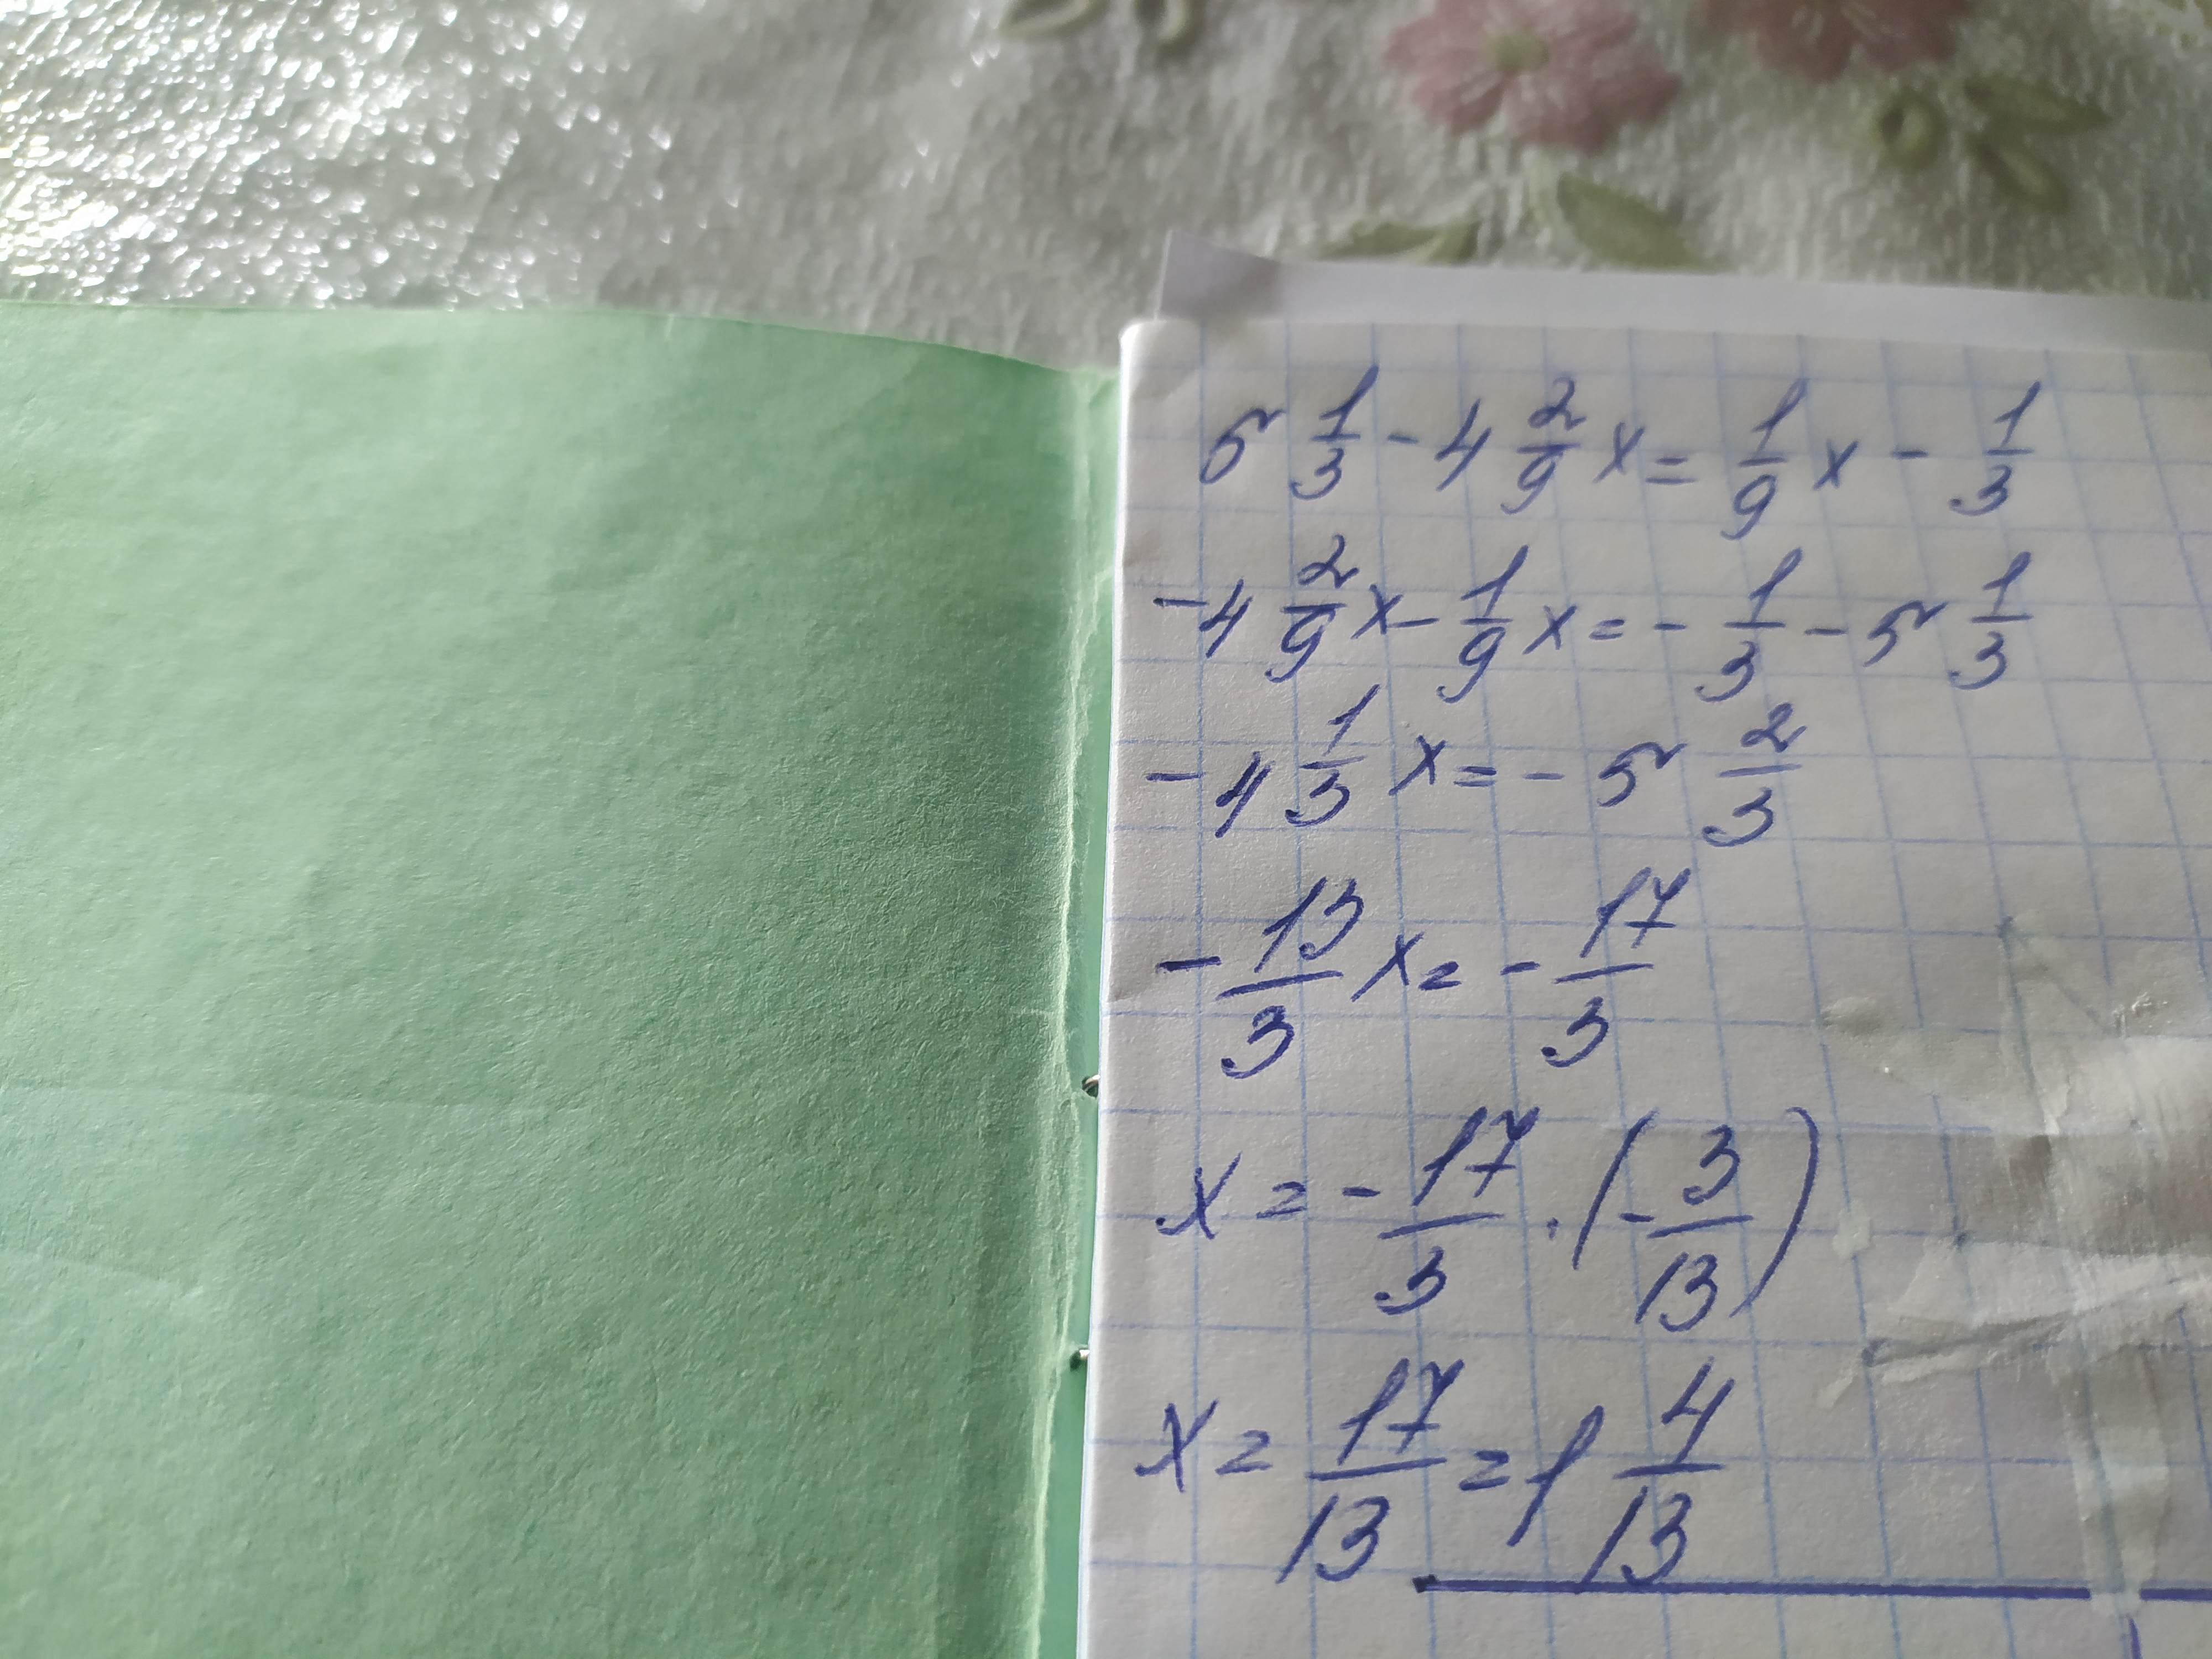 5 1/3 - 4 2/9 x = 1/9 x - 1/3
-4 2/9 x - 1/9 x = - 1/3 - 5 1/3
-4 1/3 x = - 5 2/3
- 13/3 x = - 17/3
x = - 17/3 · (- 3/13)
x = 17/13 = 1 4/13